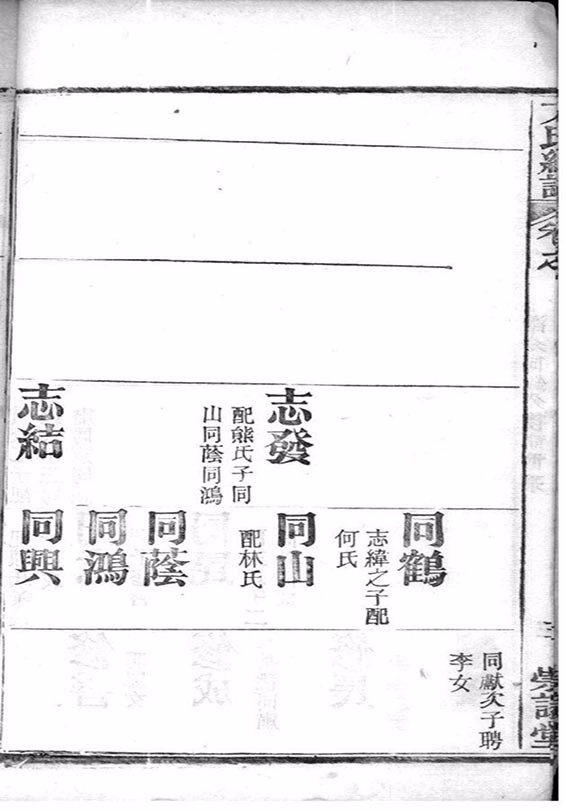 氏
卷之
志發
配熊氏子同
山同蔭同鴻
志結
同鶴
志緯之子配
何氏
同山
配林氏
同蔭
同鴻
同興
同獻次子聘
李女